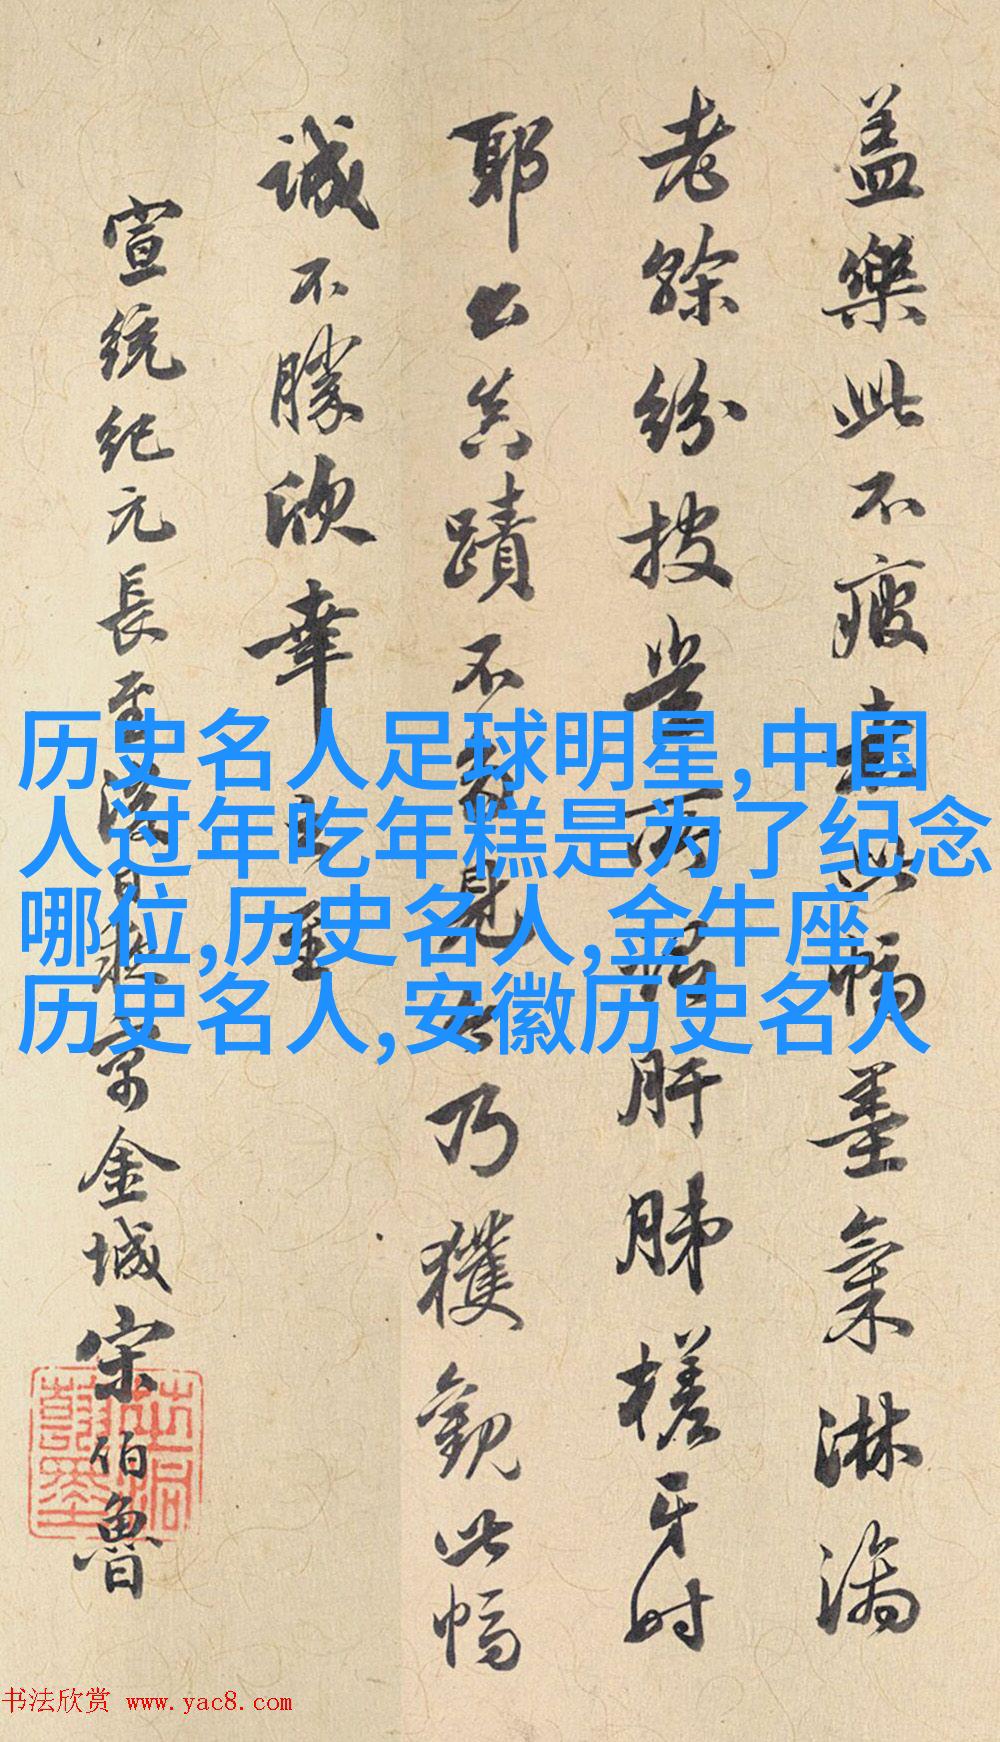 盖樂此不疲
墨氣淋漓
老餘紛披
肝肺槎牙时
耶公真蹟不
乃獲觀此幅
誠不勝欣幸之至
宣統紀元長至後
京金城宋伯魯
历史名人足球明星,中国
人过年吃年糕是为了纪念
哪位,历史名人,金牛座
历史名人,安徽历史名人
书法欣赏 www.yac8.com